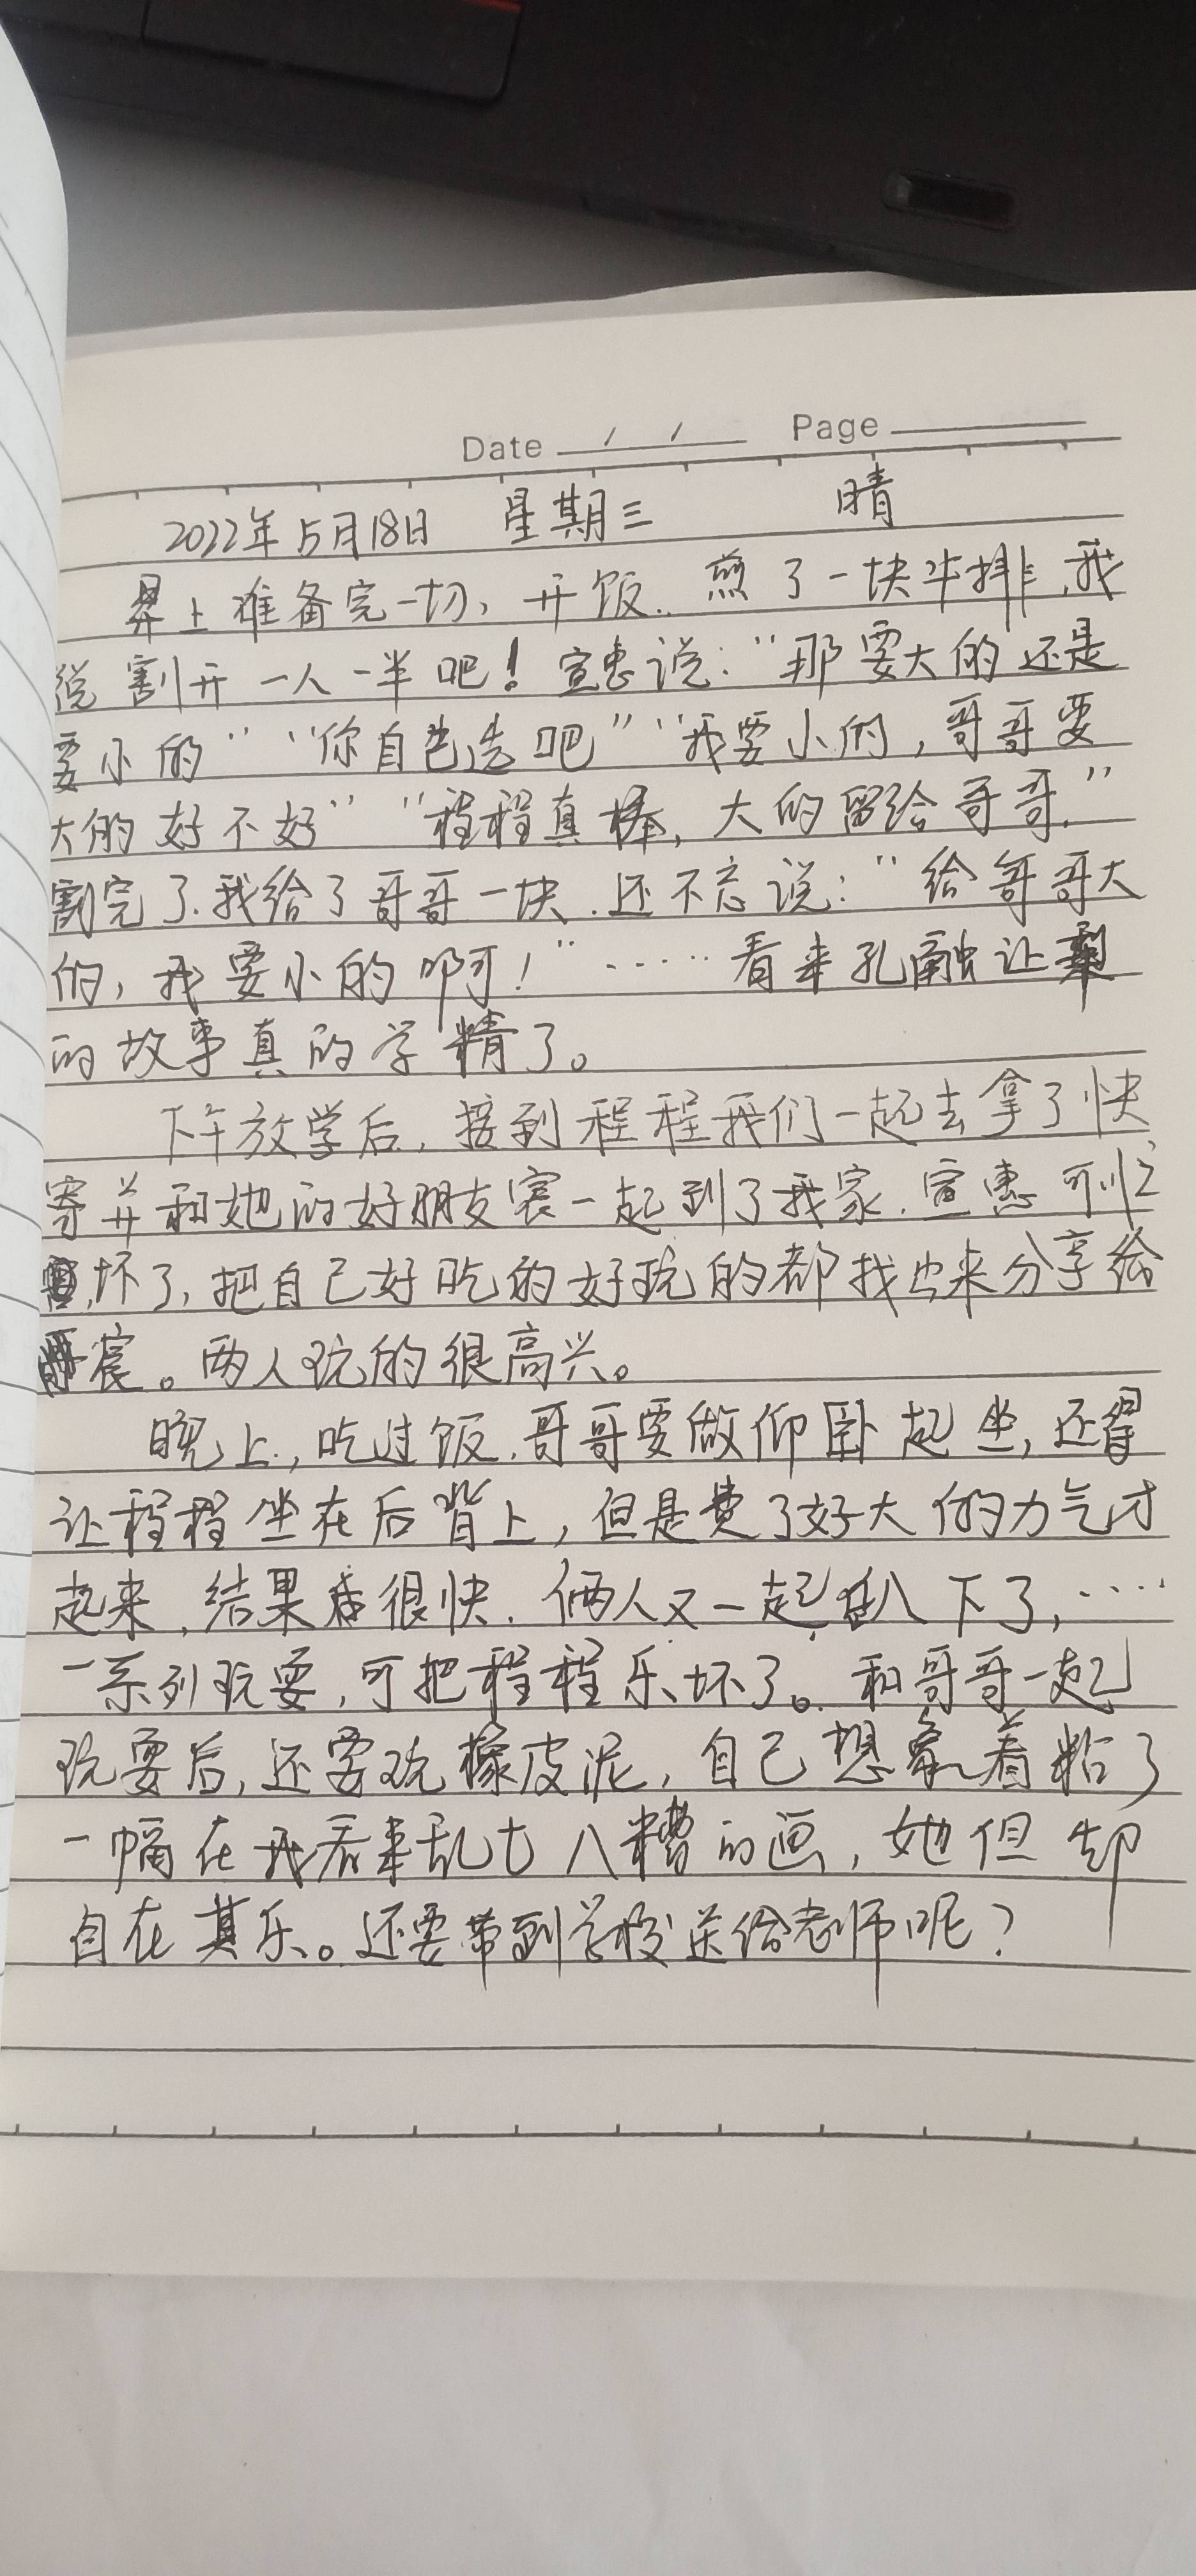 Date / / Page
2022年5月18日 星期三 晴
早上准备完一切，开饭．煎了一块牛排，我
说割开一人一半吧！宣惠说：“那要大的还是
要小的” “你自己选吧” “我要小的，哥哥要
大的好不好” “程程真棒，大的留给哥哥．”
割完了．我给了哥哥一块．还不忘说：“给哥哥大
的，我要小的啊！” ……看来孔融让梨
的故事真的学精了。
下午放学后，接到程程我们一起去拿了快
寄并和她的好朋友宸一起到了我家．宣惠可
坏了，把自己好吃的好玩的都找出来分享给
宸。两人玩的很高兴。
晚上，吃过饭．哥哥要做仰卧起坐，还得
让程程坐在后背上，但是费了好大的力气才
起来，结果很快．俩人又一起趴下了，……
一系列玩耍，可把程程乐坏了。和哥哥一起
玩耍后，还要玩橡皮泥，自己想象着粘了
一幅在我看来乱七八糟的画，她但却
自在其乐。还要带到学校送给老师呢？